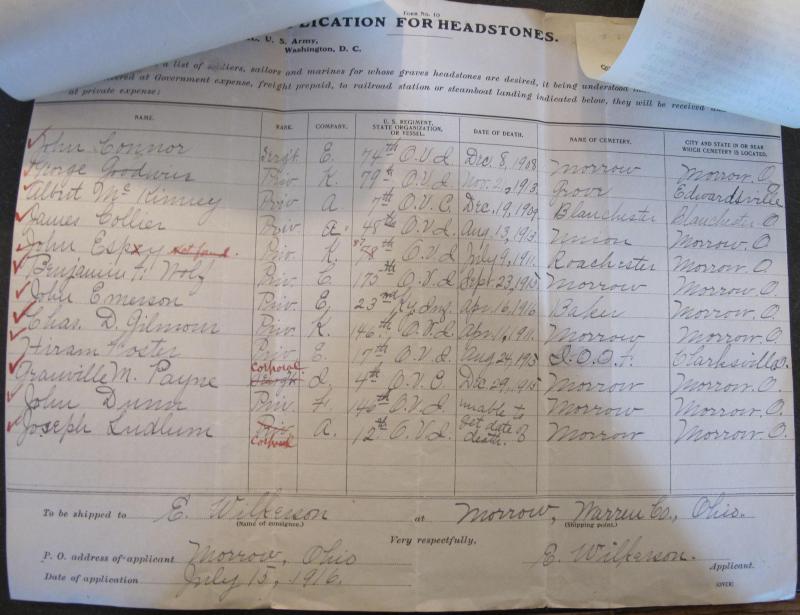 FORM NO. 10
PLICATION FOR HEADSTONES.
U. S. Army,
Washington, D. C.
a list of soldiers, sailors and marines for whose graves headstones are desired, it being understood
at Government expense, freight prepaid, to railroad station or steamboat landing indicated below, they will be received
at private expense:
NAME. RANK. COMPANY. U. S. REGIMENT, STATE ORGANIZATION, OR VESSEL. DATE OF DEATH. NAME OF CEMETERY. CITY AND STATE IN OR NEAR WHICH CEMETERY IS LOCATED.
John Connor Sergt. E. 74th O.V.I. Dec. 8, 1908 Morrow Morrow. O.
George Goodwin Priv. K. 79th O.V.I. Nov. 2, 1913 Grove Edwardsville
Albert McKinney Priv. A 7th O.V.C. Dec. 19, 1909 Blanchester Blanchester O
James Collier Priv. A. 48th O.V.I. Aug 13, 1913 Union Morrow. O.
John Espy not found. Priv. K. 58th O.V.I. July 9, 1911. Roachester Morrow. O.
Benjamin F. Wolf Priv. C. 175th O.V.I. Sept 23, 1915 Morrow Morrow. O.
John Emerson Priv. E. 23rd Ky Inf. Apr 16, 1916 Baker Morrow. O.
Chas. D. Gilmour Priv. K. 146th O.V.I. Apr. 16, 1911. Morrow Morrow. O.
Hiram Foster Priv. E. 17th O.V.I. Aug 24, 1915 I.O.O.F. Clarksville O.
Granville M. Payne Corporal Sergt. L. 4th O.V.C. Dec. 29, 1915 Morrow Morrow. O.
John Dunn Priv. F. 146th O.V.I. unable to Morrow Morrow. O.
Joseph Ludlum Priv. Corporal A. 12th O.V.I. get date of death. Morrow Morrow. O.
To be shipped to E. Wilkerson at Morrow, Warren Co., Ohio.
(Name of consignee.) (Shipping point.)
Very respectfully,
P. O. address of applicant Morrow, Ohio E. Wilkerson.
Applicant.
Date of application July 15, 1916.
(OVER)